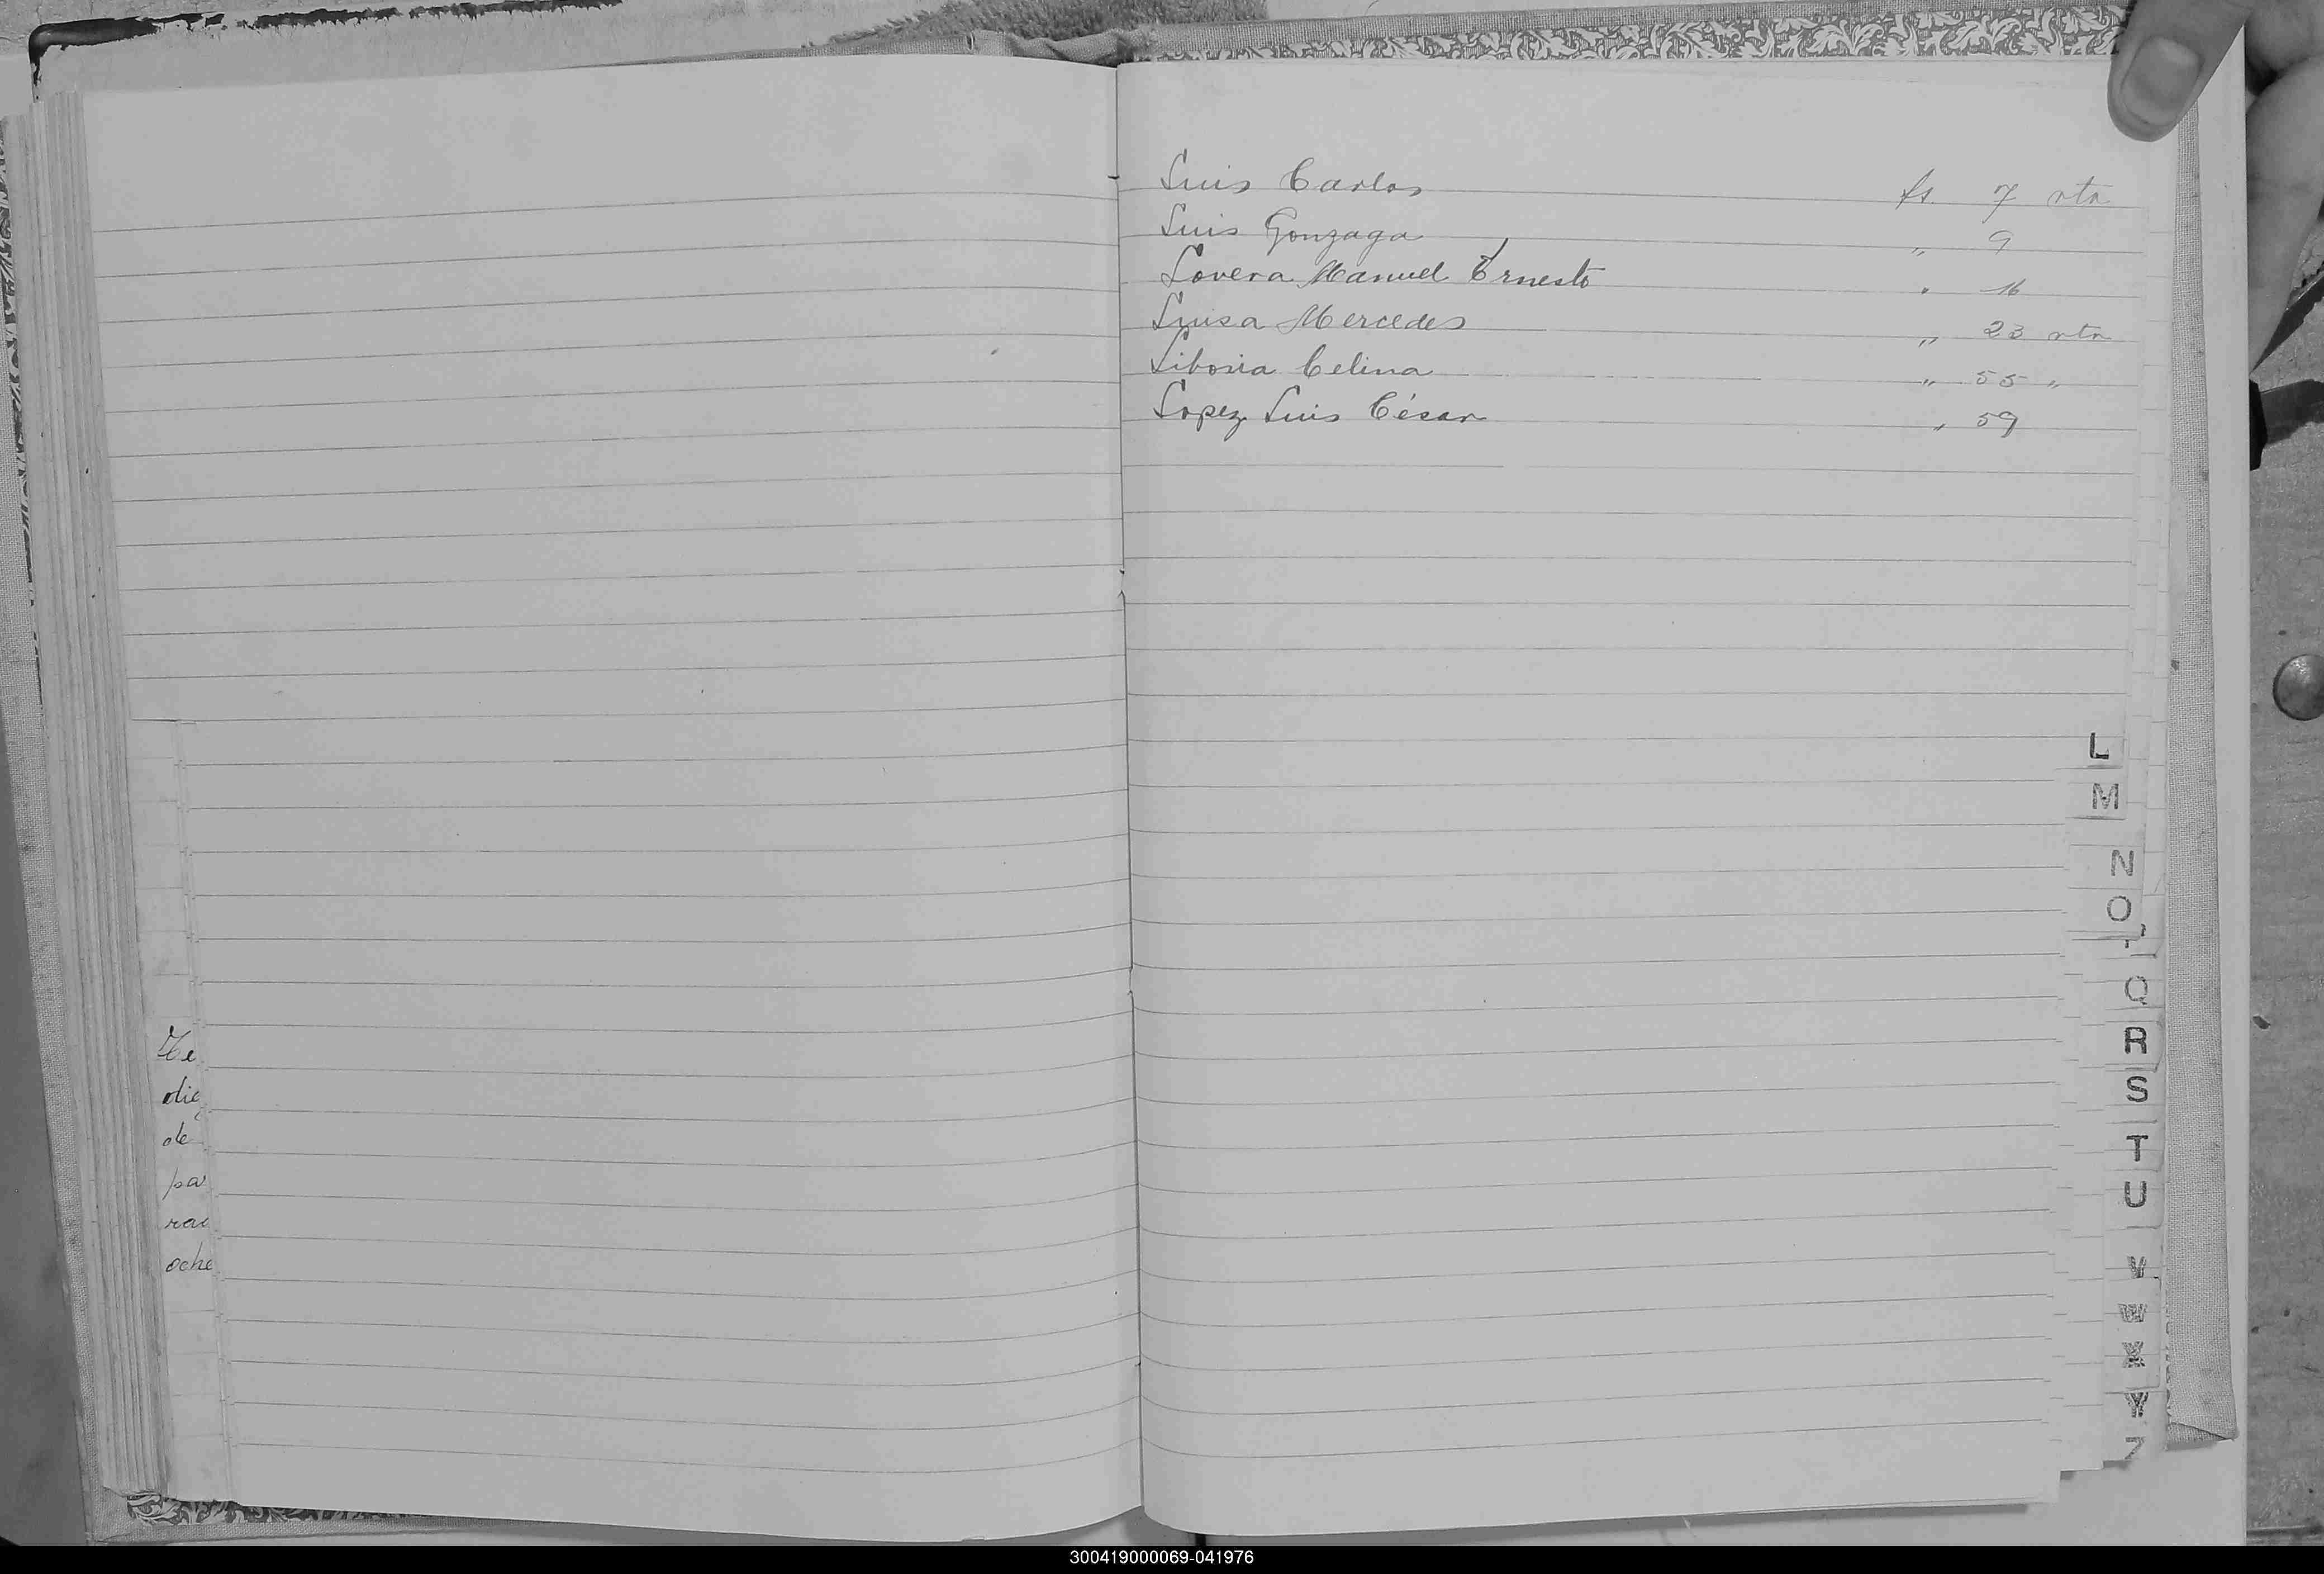 Luis Carlos fs. 7 vta
Luis Gonzaga " 9
Lovera Manuel Ernesto " 16
Luisa Mercedes " 23 vta
Liboria Celina " 55 "
Lopez Luis César " 59
L
M
N
O
Q
R
S
T
U
V
W
X
Y
Z
de
pa
rac
oche
300419000069-041976